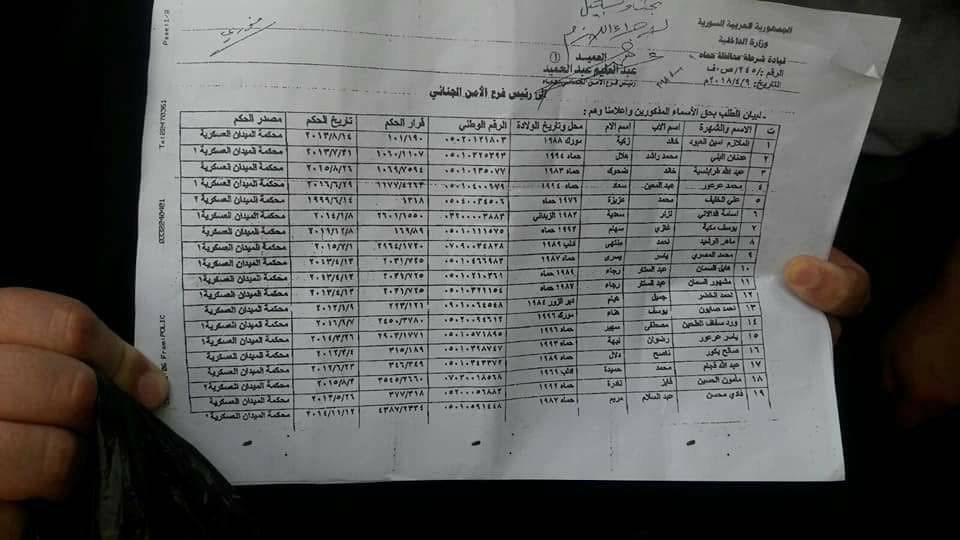 الجمهورية العربية السورية
وزارة الداخلية
قيادة شرطة محافظة حماه
الرقم: /٢٤٥/ص.ف
التاريخ: ٢٠١٨/٤/٩م
العميد
عبد الحليم عبد الحميد
إلى رئيس فرع الأمن الجنائي
لبيان الطلب بحق الأسماء المذكورين واعلامنا وهم:
ت الاسم والشهرة اسم الاب اسم الام محل وتاريخ الولادة الرقم الوطني قرار الحكم تاريخ الحكم مصدر الحكم
١ الملازم امين العبود خالد زكية مورك ١٩٨٨ ٠٥٠٢٠١٢١٨٠٣ ١٠١/١٩٠ ٢٠١٣/٨/١٤ محكمة الميدان العسكرية
٢ عدنان محمد راشد هلال حماه ١٩٩٤ ٢٠١٣/٧/٢١ محكمة الميدان العسكرية
٣ عبد الله خالد ضحوك حماه ١٩٨٣ ٠٥٠١٠١٣٥٠٧٧ ١٠٦٩/٧٥٩٤ ٢٠١٥/٨/٢٦ محكمة الميدان العسكرية
٤ محمد عرعور عبد المعين سعاد حماه ١٩٩٤ ٠٥٠١٠٤٠٠٦٧٩ ٦١٧٧/٤٢٦٣ ٢٠١٦/٦/٢٩ محكمة الميدان العسكرية ١
٥ علي الخليف محمد عزيزة حماه ١٩٧٦ ٠٥٠٤٠٠٣٤٥٠٦ ١٣١٨ ١٩٩٩/٦/١٤ محكمة الميدان العسكرية
٦ اسامة الدالاتي نزار سعدية ١٩٨٣ الزبداني ٠٣٢٠٠٠٠٣٨٨٣ ٢٦٠١/١٥٥٠ ٢٠١٤/١/٨ محكمة الميدان العسكرية ٢
٧ يوسف مكية غازي سهام حماه ١٩٩٣ ٠٥٠١٠١١١٥٧٥ ١٦٩/٨٩ ٢٠١٢/١٢/٨ محكمة الميدان العسكرية
٨ ماهر احمد منتهى ١٩٨٩ ٠٧٠٩٠٠٣٤٨٢٨ ٢٩٦٤/١٧٢٠ ٢٠١٥/٧/١ محكمة الميدان العسكرية ١
٩ محمد المصري ياسر يسرى حماه ١٩٨٧ ٠٥٠١٠٤٦٦٩٨٣ ٢٠٣١/٧٤٥ ٢٠١٣/٤/١٣ محكمة الميدان العسكرية ١
١٠ السمان عبد الستار رجاء ١٩٨٤ حماه ٠٥٠١٠٢١٠٣٦١ ٢٠٣١/٧٢٥ ٢٠١٣/٤/١٣ محكمة الميدان العسكرية ١
١١ مشهور السمان عبد الستار رجاء حماه ١٩٨٧ ٠٥٠١٠٣٢١١٥٤ ٢٠٣١/٧٤٥ ٢٠١٣/٤/١٣ محكمة الميدان العسكرية ١
١٢ احمد الخضر جميل دير الزور ١٩٨٤ ٠٩٠١٠٠٦٤٥٤٨ ٢٢٣/١٢١ ٢٠١٢/١/٩ محكمة الميدان العسكرية
١٣ احمد صابون يوسف هناء مورك ١٩٩٦ ٠٥٠٢٠٠٩٤٦١٢ ٢٤٥٠/٣٧٨٠ ٢٠١٦/٩/٧ محكمة الميدان العسكرية ١
١٤ ورد سفاف الطحين مصطفى سهير حماه ١٩٩٦ ٠٥٠١٠٥٧١٨٩٥ ٢٩٠٣/١٧٧١ ٢٠١٤/٣/٢٦ محكمة الميدان العسكرية ١
١٥ ياسر عرعور رضوان لبيبة حماه ١٩٩٣ ٠٥٠١٠٣٩٨٧٤٧ ٣١٥/١٨٩ ٢٠١٢/٢/٤ محكمة الميدان العسكرية
١٦ صالح بكور ناصح دلال حماه ١٩٨٩ ٠٥٠١٠٣٤٣٣٧٢ ٣٤٦/٣٤٩ ٢٠١٢/٦/٢٣ محكمة الميدان العسكرية
١٧ عبد الله محمد حميدة ١٩٦٩ ٠٧٠٣٠٠١٨٥٦٨ ٣٥٤٥/٢٦٦٠ ٢٠١٥/٨/٣ محكمة الميدان العسكرية ٢
١٨ مأمون الحسين فايز نادرة حماه ١٩٩٢ ٠٥٢٠٠٠٥٦٨٨٢ ٣٧٧/٣١٨ ٢٠١٢/٥/٢٦ محكمة الميدان العسكرية
١٩ فادي محسن عبد السلام مريم حماه ١٩٨٧ ٠٥٠١٠٥٩١٤٤٨ ٤٣٨٧/٢٣٣٤ ٢٠١٤/١١/١٢ محكمة الميدان العسكرية
Page:1/2
Tel:22470351
0332240401
From:POLIC